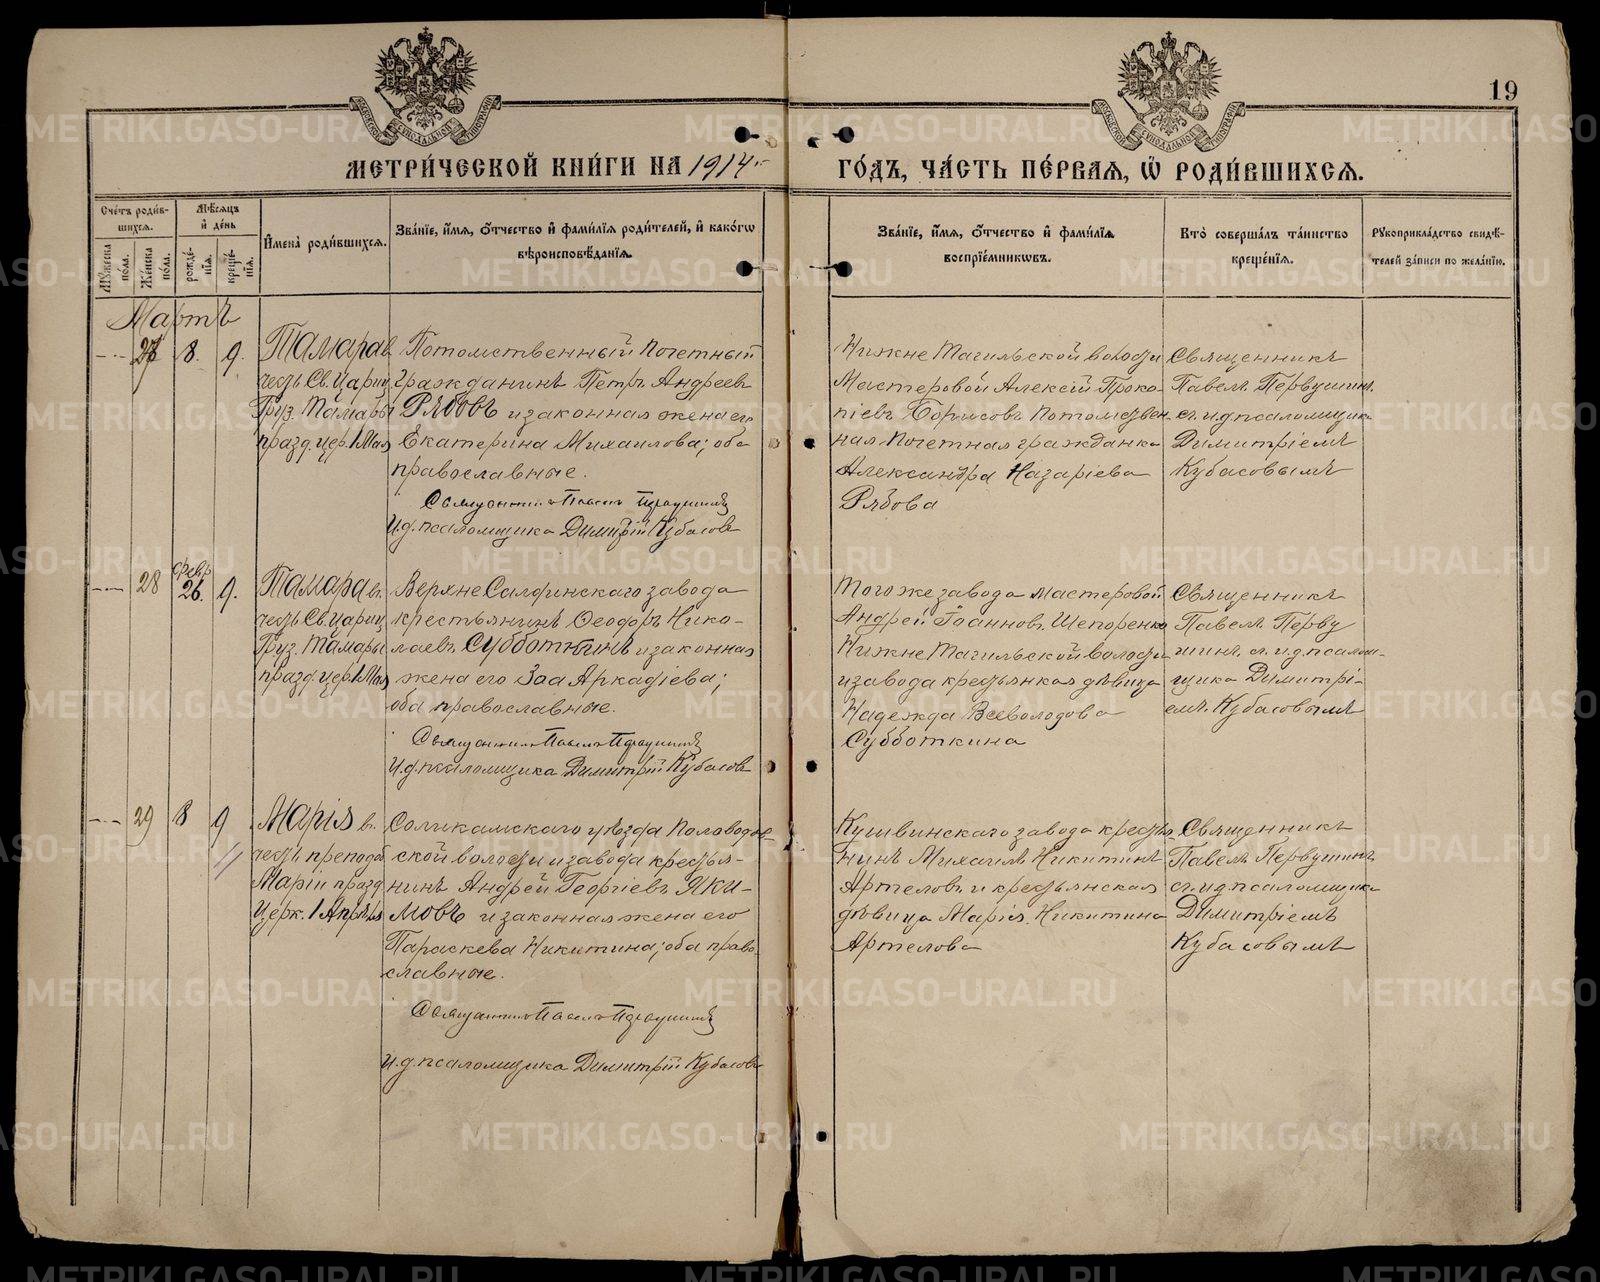 19
МЕТРИ́ЧЕСКОЙ КНИ́ГИ НА 1914 ГО́ДЪ, ЧА́СТЬ ПЕ́РВАЯ, Ѽ РОДИ́ВШИХСЯ.
Сче́тъ роди́в-
шихся.
Мѣ́сяцъ
и҆ де́нь
Му́жеска
по́ла.
Же́нска
по́ла.
рожде́-
нїѧ.
креще́-
нїѧ.
И҆мена̀ роди́вшихся.
Зва́нїе, и҆́мя, ѻ҆́тчество и҆ фами́лїя роди́телей, и҆ како́гѡ
вѣроисповѣ́данїѧ.
Зва́нїе, и҆́мя, ѻ҆́тчество и҆ фами́лїя
воспрїе́мникѡвъ.
Кто̀ соверша́лъ та́инство
креще́нїѧ.
Рꙋкоприкла́дство свидѣ́-
телей за́писи по жела́нїю.
Мартъ
27 8. 9.
Тамара в
честь Св. Цариц
Груз. Тамары
празд. цер. 1 Мая
Потомственный Почетный
гражданинъ Петръ Андреевъ
Рябовъ и законная жена его
Екатерина Михаилова; оба
православные.
Священникъ Павелъ Первушинъ
И.д. псаломщика Димитрій Кубасовъ
Нижне Тагильской волости
Мастеровой Алексій Проко-
піевъ Борисовъ Потомствен-
ная Почетная гражданка
Александра Назаріева
Рябова
Священникъ
Павелъ Первушинъ
съ и.д. псаломщика
Димитріемъ
Кубасовымъ
28 февр 26. 9.
Тамара в.
честь Св. Цариц
Груз. Тамары
празд. цер. 1 Мая
Верхне Салдинскаго завода
крестьянинъ Ѳеодоръ Нико-
лаевъ Субботинъ и законная
жена его Зоа Аркадіева;
оба православные.
Священникъ Павелъ Первушинъ
И.д. псаломщика Димитрій Кубасовъ
Того же завода мастеровой
Андрей Іоанновъ Шепоренко
Нижне Тагильской волости
и завода крестьянская дѣвица
Надежда Всеволодова
Субботкина
Священникъ
Павелъ Перву
шинъ съ и.д. псалом-
щика Димитрі-
емъ Кубасовымъ
29 8 9
Марія в.
честь преподоб
Маріи празд
Церк. 1 Апрѣля
Соликамскаго уѣзда Половодов-
ской волости и завода крестья-
нинъ Андрей Георгіевъ Яки-
мовъ и законная жена его
Параскева Никитина; оба право-
славные.
Священникъ Павелъ Первушинъ
И.д. псаломщика Димитрій Кубасовъ
Кушвинскаго завода крестья-
нинъ Михаилъ Никитинъ
Артеловъ и крестьянская
дѣвица Марія Никитина
Артелова
Священникъ
Павелъ Первушинъ
съ и.д. псаломщика
Димитріемъ
Кубасовымъ